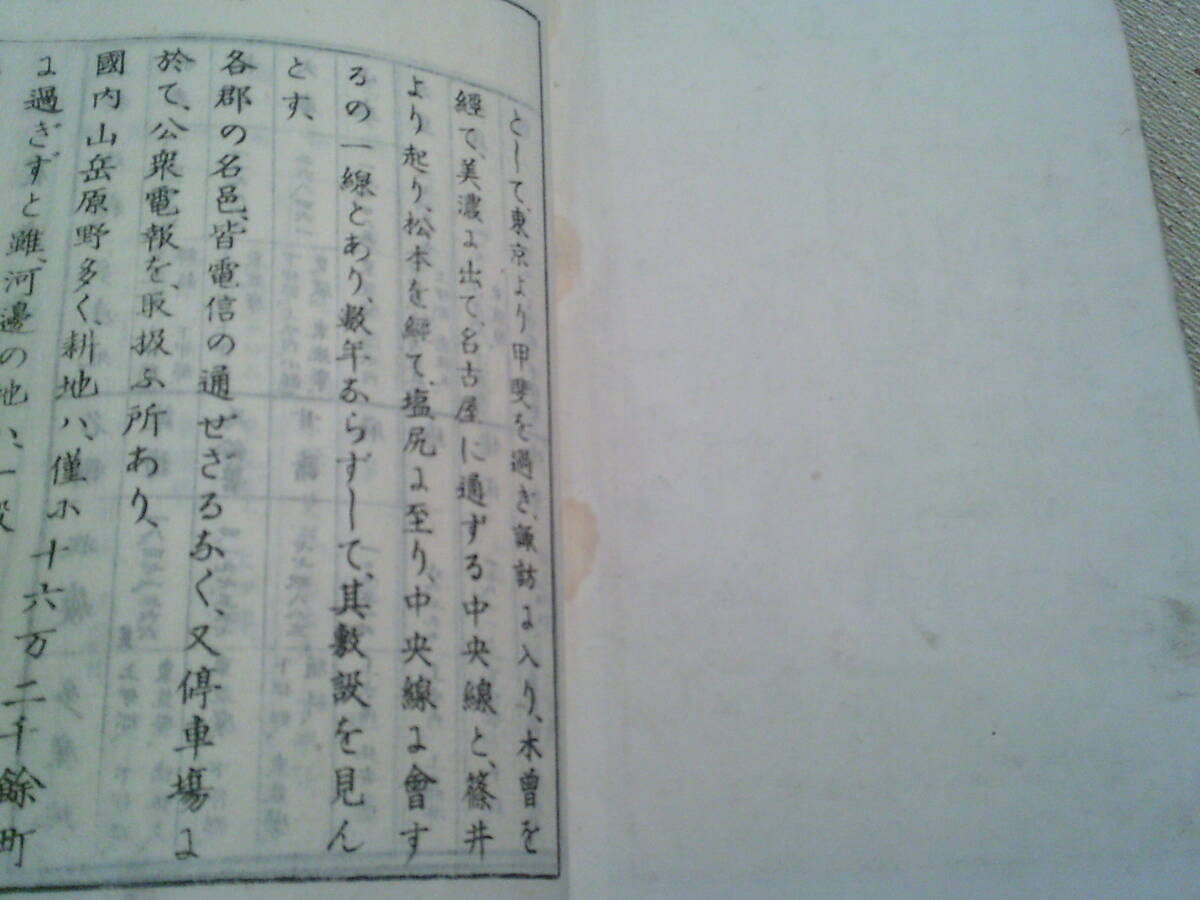 として、東京より甲斐を過ぎ、諏訪に入り、木曽を
經て、美濃に出て、名古屋に通ずる中央線と、篠井
より起り、松本を經て、塩尻に至り、中央線に會す
るの一線とあり、數年ならずして、其敷設を見ん
とす、
各郡の名邑、皆電信の通ぜざるなく、又停車場に
於て、公衆電報を、取扱ふ所あり、
國内山岳原野多く、耕地ハ、僅に十六万二千餘町
に過ぎずと雖、河邊の地ハ、一